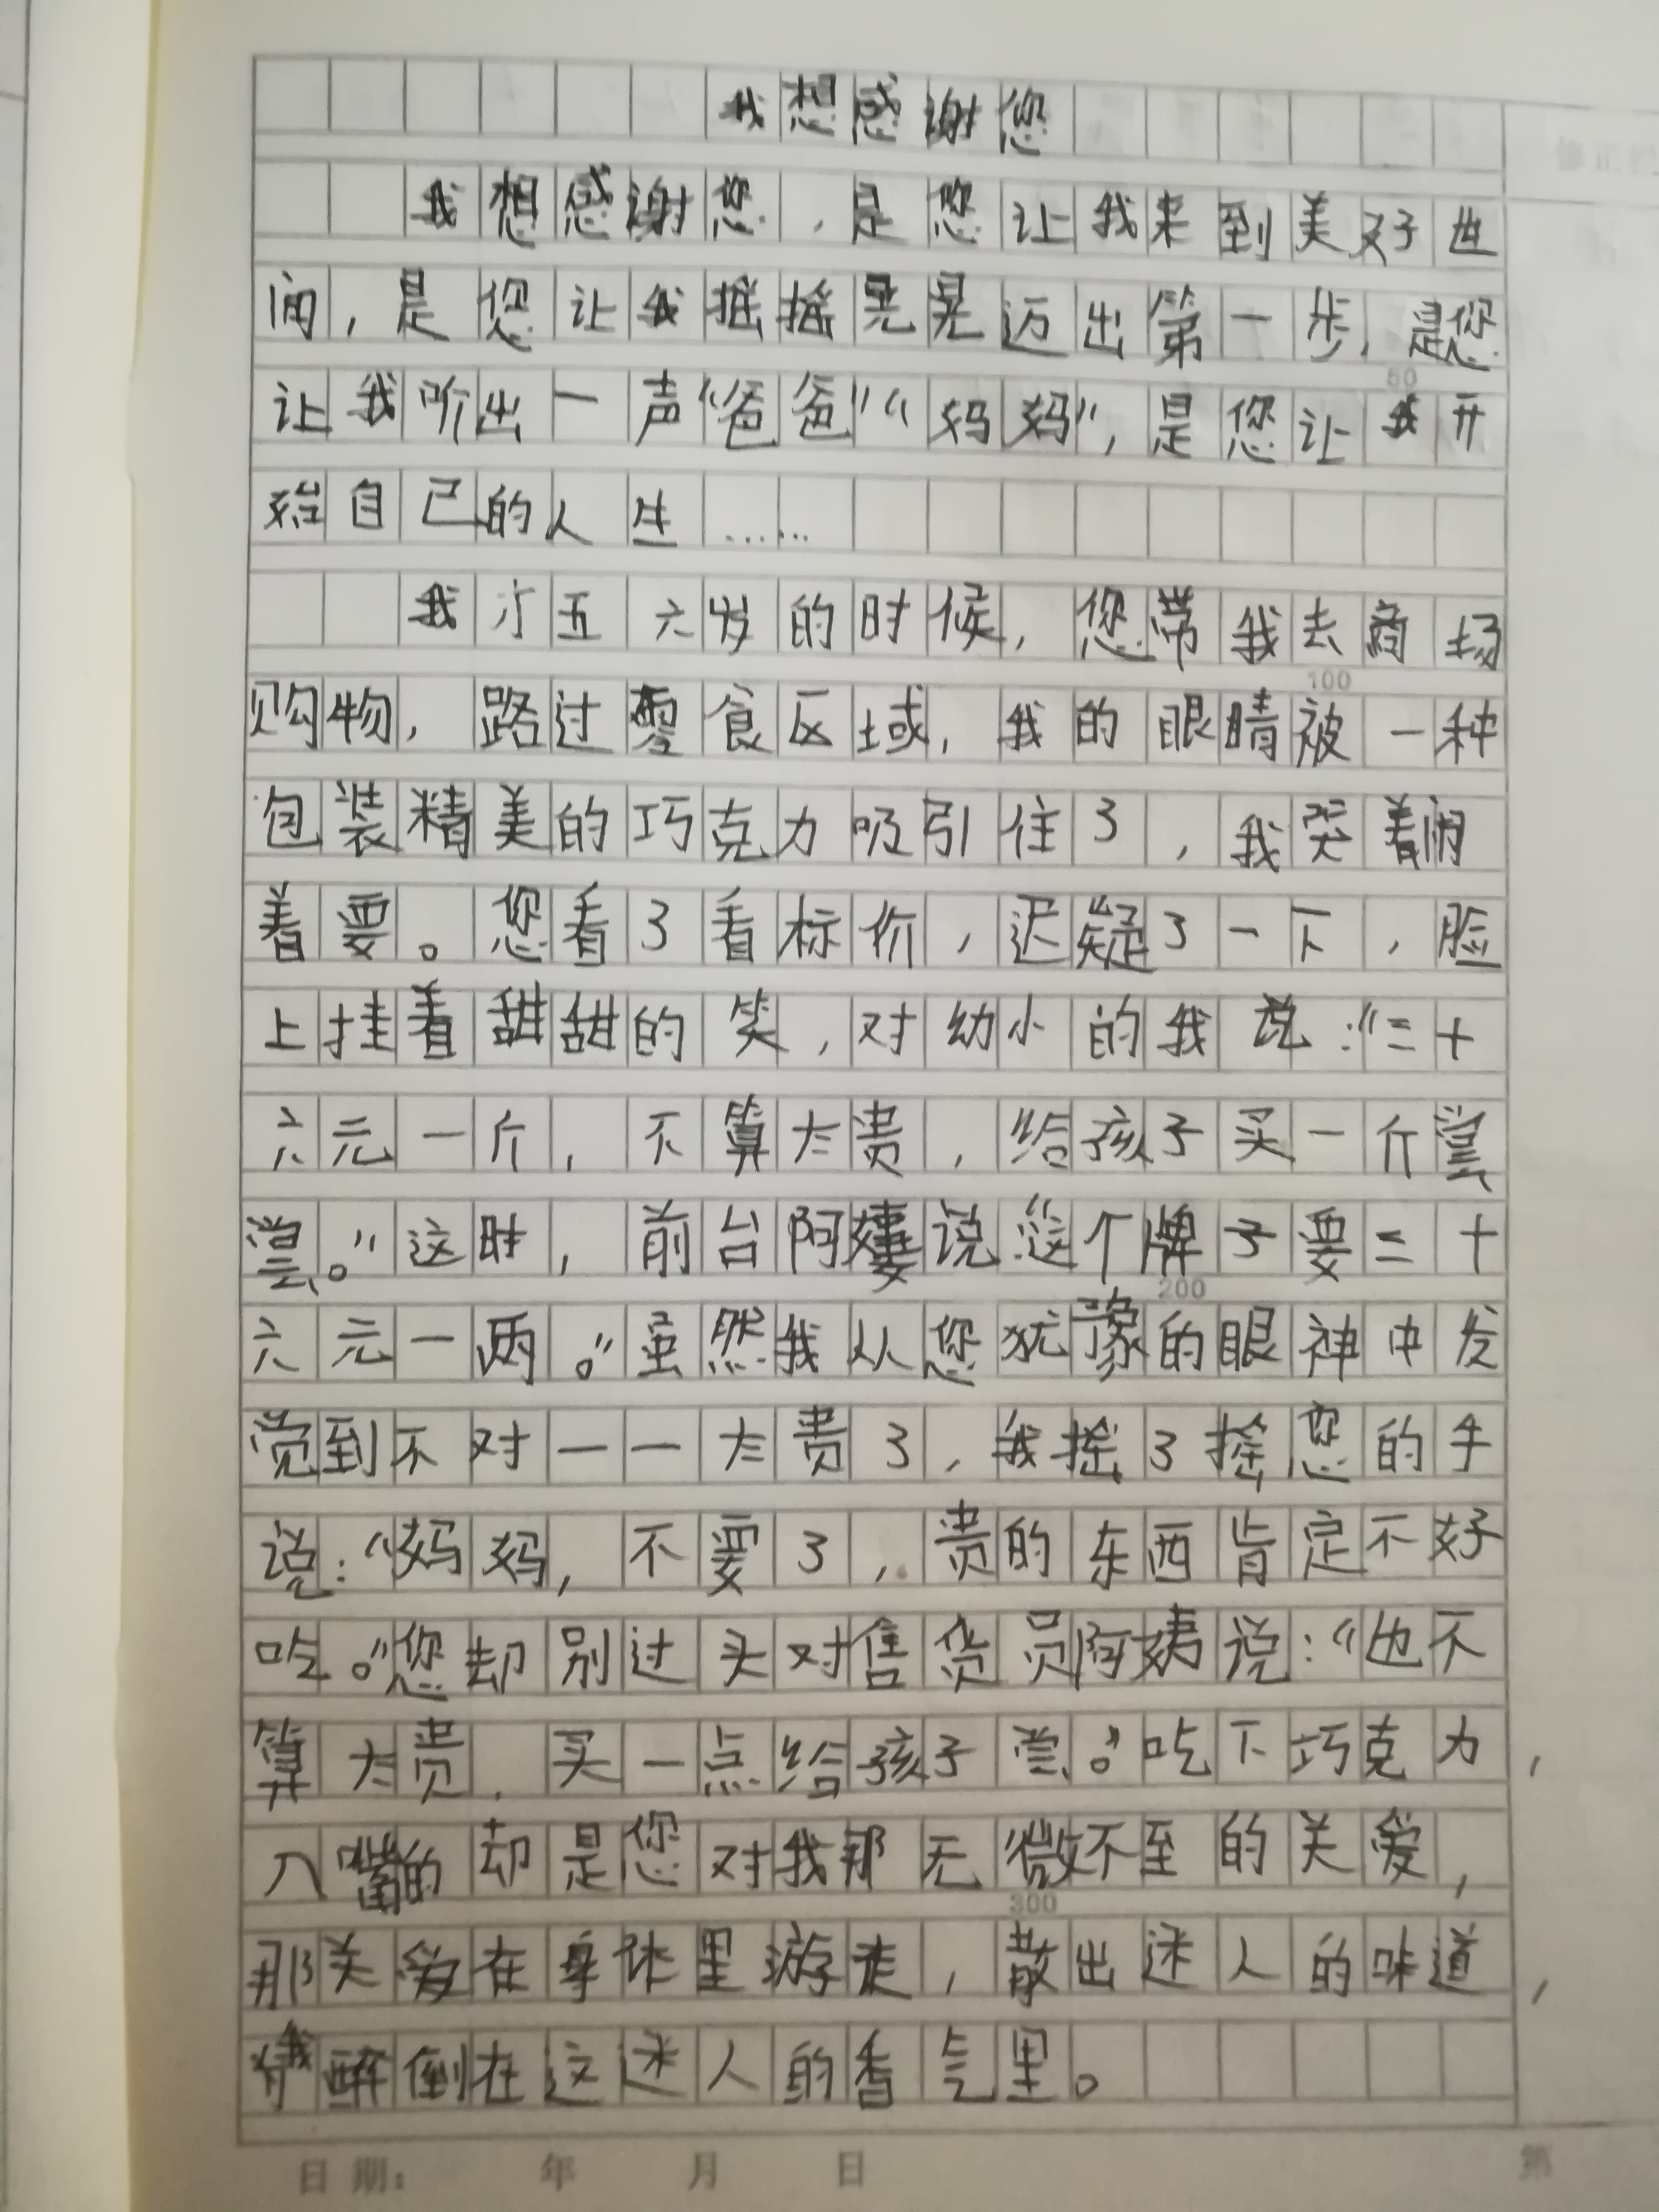 我想感谢您
我想感谢您，是您让我来到美好世
间，是您让我摇摇晃晃迈出第一步，是您
让我听出一声“爸爸”“妈妈”，是您让我开
始自己的人生……
我才五六岁的时候，您带我去商场
购物，路过零食区域，我的眼睛被一种
包装精美的巧克力吸引住了，我哭着闹
着要。您看了看标价，迟疑了一下，脸
上挂着甜甜的笑，对幼小的我说：“二十
六元一斤，不算太贵，给孩子买一斤尝
尝。”这时，前台阿姨说：这个牌子要二十
六元一两。”虽然我从您犹豫的眼神中发
觉到不对——太贵了，我摇了摇您的手
说：“妈妈，不要了，贵的东西肯定不好
吃。”您却别过头对售货员阿姨说：“也不
算太贵，买一点给孩子尝。”吃下巧克力，
入嘴的却是您对我那无微不至的关爱，
那关爱在身体里游走，散出迷人的味道，
我醉倒在这迷人的香气里。
50
100
200
300
日期： 年 月 日
第